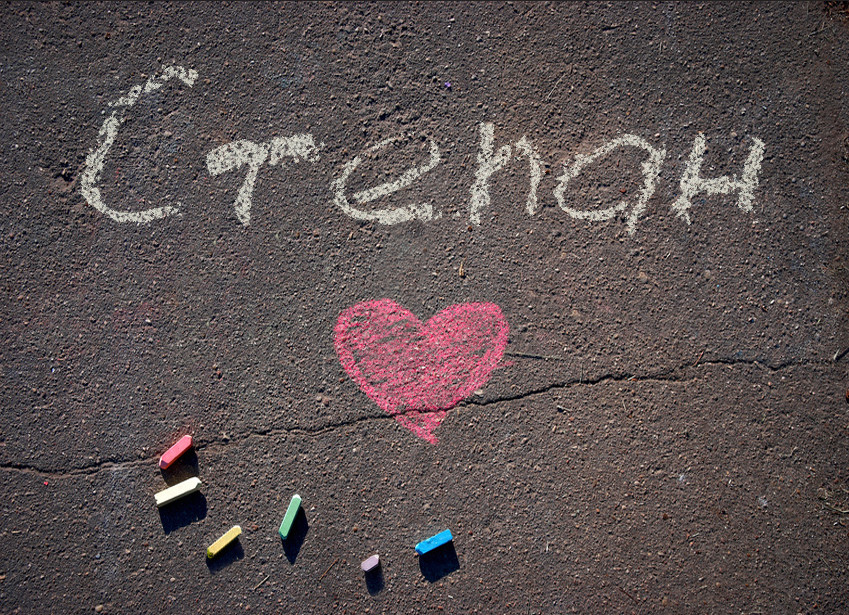 Степан